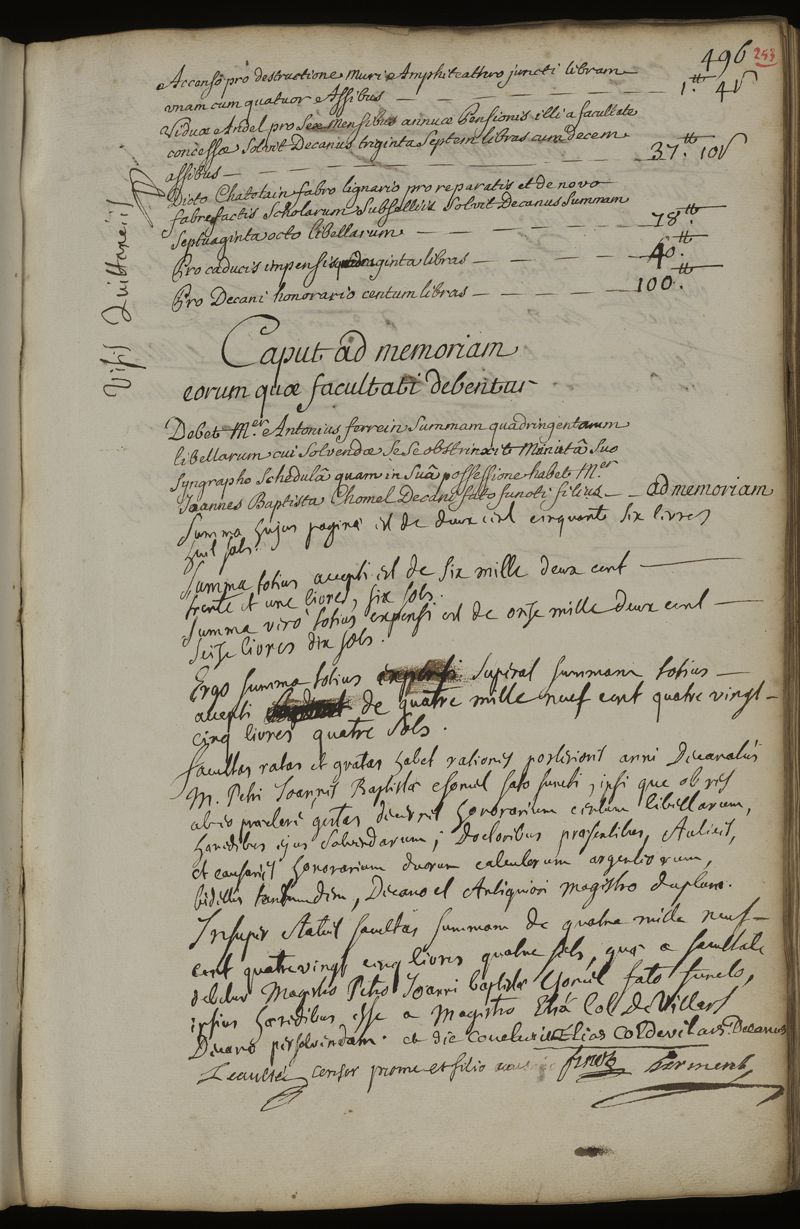 496
253
Accenso pro destructione muri Amphiteathro juncti libram
unam cum quatuor Assibus — — — — — 1.tt 4ſ
Viduæ Andel pro Sex Mensibus annuæ Pensionis illi a facultate
concessæ Solvit Decanus triginta Septem libras cum decem
assibus — — — — — 37.tt 10ſ
Dicto Chatolain fabro lignario pro reparatis et de novo
fabrefactis Scholarum Subselliis Solvit Decanus Summam
Septuaginta octo libellarum — — — — 78.tt
Pro caducis impensis quadraginta libras — — — 40.tt
Pro Decani honorario centum libras — — — — 100.tt
Visis Quittanciis
Caput ad memoriam
eorum quæ facultati debentur
Debet M.er Antonius ferrein Summam quadringentarum
libellarum cui Solvendæ Se Se obstrinxit Miniatâ Suo
Syngrapho Schedulâ quam in Suâ possessione habet M.er
Joannes Baptista Chomel Decani fato functi filius — — ad memoriam
Summa hujus paginæ est de deux cent cinquante six livres
huit sols.
Summa totius accepti est de six mille deux cent —
trente et une livres, six sols.
Summa vero totius expensi est de onse mille deux cent —
seise livres dix sols.
Ergo summa totius expensi superat summam totius —
accepti de quatre mille neuf cent quatre vingt —
cinq livres quatre sols.
facultas ratas et gratas habet rationes posterioris anni Decanatûs
M. Petri Joannis Baptistæ Chomel fato functi, ipsi que ob res
ab eo præclare gestas decrevit honorarium centum libellarum,
hæredibus ejus solvendarum; Doctoribus præsentibus, Aulicis,
et causariis honorarium duorum calculorum argenteorum,
bidellis tantumdem, Decano et Antiquiori magistro duplum.
Insuper statuit facultas summam de quatre mille neuf —
cent quatre vingt cinq livres quatre sols, quæ a facultate
debetur Magistro Petro Joanni baptistæ Chomel fato functo,
ipsius hæredibus esse a Magistro Eliâ Col De Villars
Decano persolvendam. et sic conclusit Elias Col de vilars Decanus
censor prome et filio